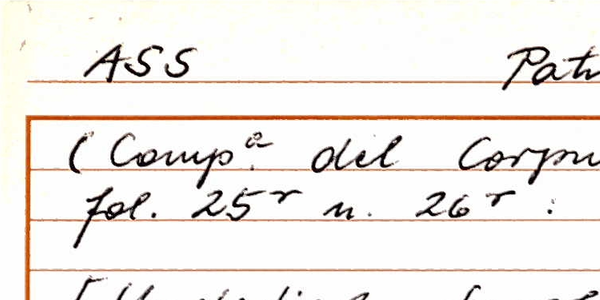 ASS Patr
(Comp.ª del Corpu
fol. 25r u. 26r :